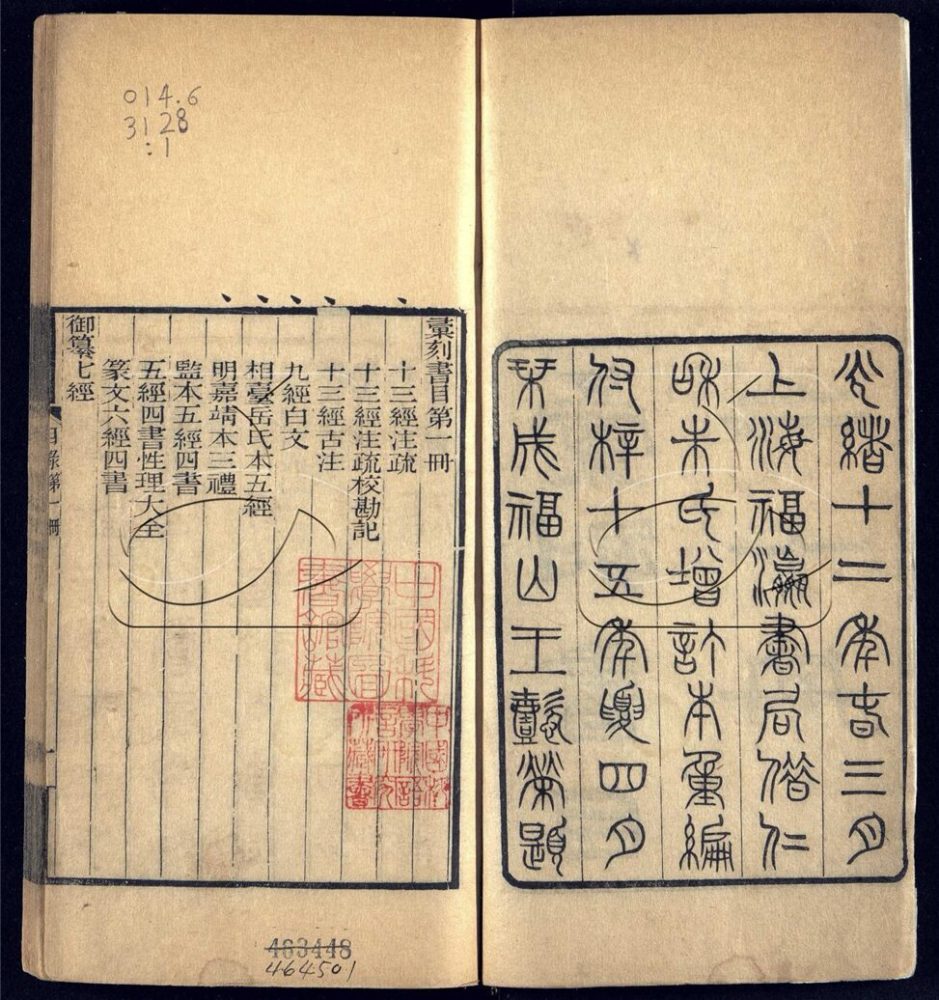 光緒十二年春三月
上海福瀛書局借仁
和朱氏增訂本重編
付梓十五年夏四月
栞成福山王懿榮題
014.6
3128
:1
彙刻書目第一冊
十三經注疏
十三經注疏校勘記
十三經古注
九經白文
相臺岳氏本五經
明嘉靖本三禮
監本五經四書
五經四書性理大全
篆文六經四書
御纂七經
目錄第一冊
中國科
學院圖
書館藏
中國科
學院語
言研究
所藏書
463448
464501